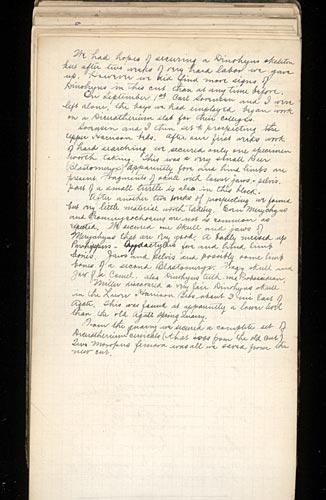 We had hopes of securing a Dinohyus skeleton
but after two weeks of very hard labor we gave
up. However we did find more signs of
Dinohyus in this cut than at any time before.
On September, Carl Sorensen and I were
left alone, the boys we had employed began work
on a Diceratherium slab for their college.
Sorensen and I then set to prospecting the
upper Harrison beds. After our first weeks work
of hard searching, we secured only one specimen
worth taking. This was a very small Deer
(Blastomeryx) apparently fore and hind limbs are
present. Fragments of skull with lower jaws, pelvis.
part of a small turtle is also in this block.
After another two weeks of prospecting we found
but very little material worth taking. Even Merychyus
and Promerycochoerus are not so common as
reported. We secured one skull and jaws of
Merychyus that are very good. A badly messed up
Parahippus fore and hind limb
bones. Jaws and pelvis and possibly some limb
bones of a second Blastomeryx. Frag. skull and
jaw of a Camel. also Dinohyus teeth and Proboscidean
Miller discovered a very fair Dinohyus skull
in the Lower Harrison beds about 1 mile East of
Agate. This was found at apparently a lower level
than the old Agate Spring Quarry.
From the quarry we secured a complete set of
Diceratherium cervicals (that was from the old cut)
Two Moropus femora was all we saved from the
new cut.